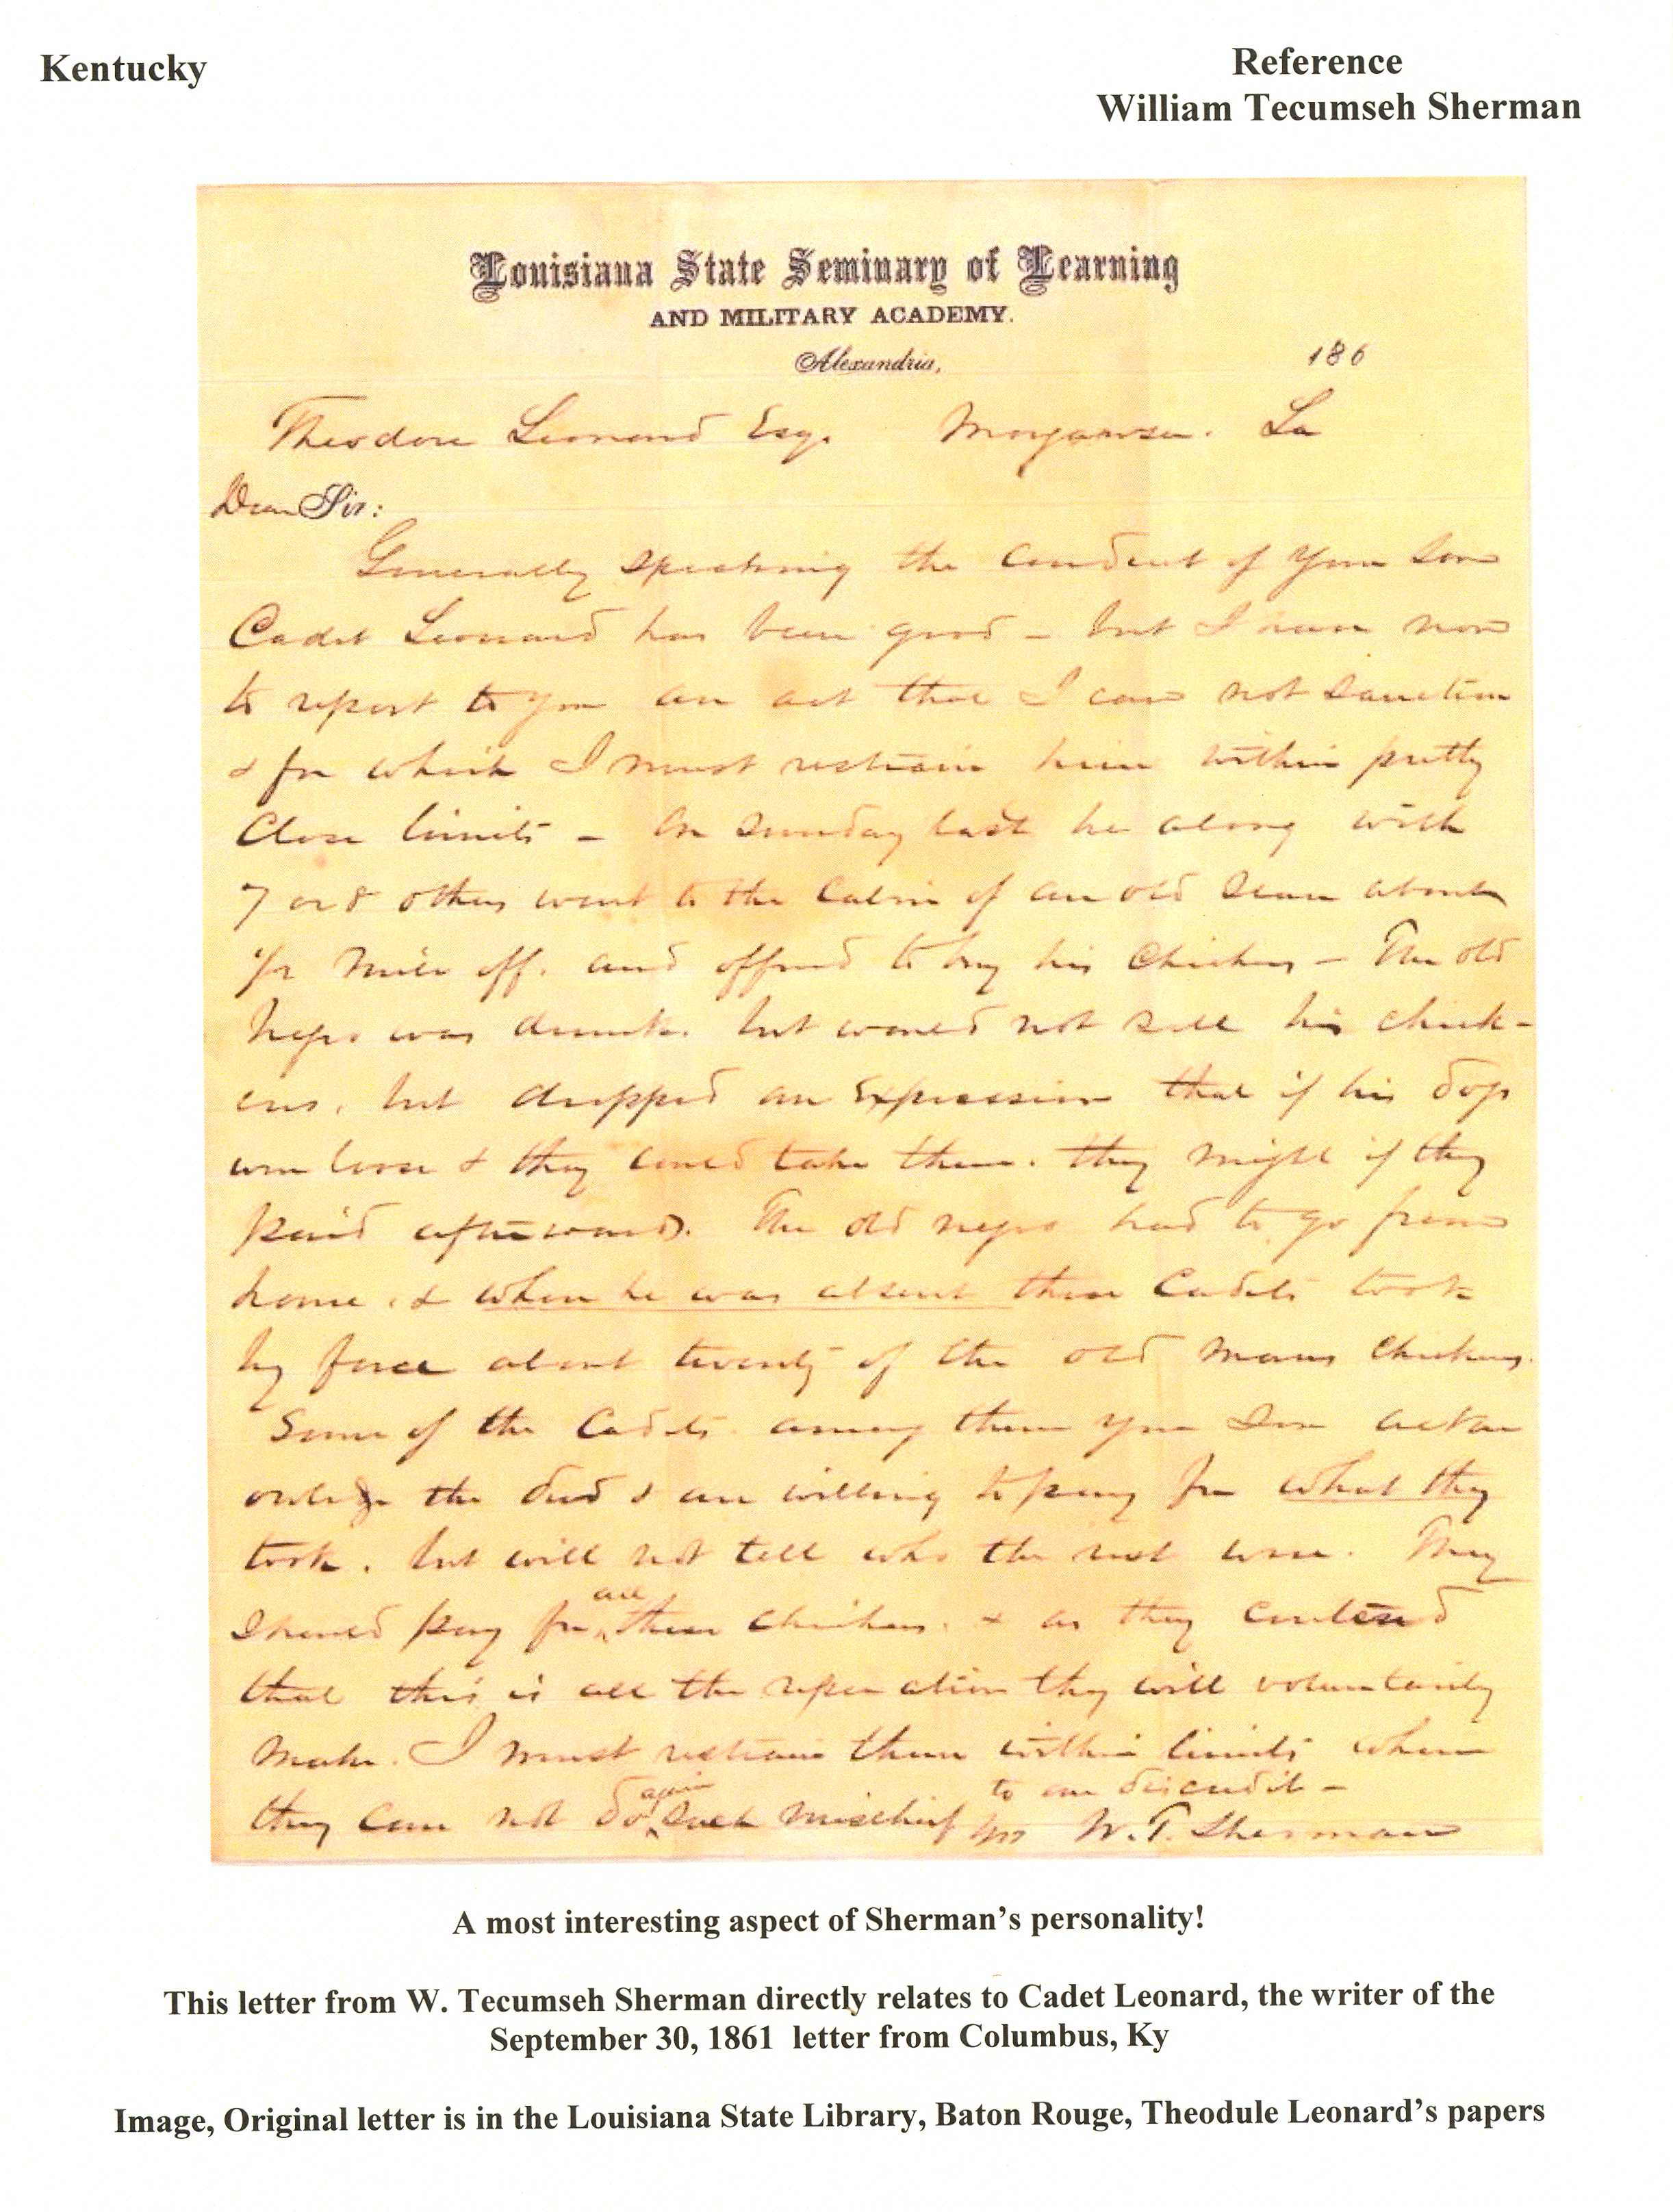 Kentucky
Reference
William Tecumseh Sherman
Louisiana State Seminary of Learning
AND MILITARY ACADEMY.
Alexandria, 186
Theodore Leonard Esq. Morganza. La
Dear Sir:
Generally speaking the conduct of your son
Cadet Leonard has been good - but I have now
to report to you an act that I can not sanction
& for which I must restrain him within pretty
close limits - On Sunday last he along with
7 or 8 others went to the cabin of an old slave about
1/2 mile off. and offered to buy his chickens - The old
negro was drunk. but would not sell his chick-
ens, but dropped an expression that if his dogs
were loose & they could take them. they might if they
paid afterwards. The old negro had to go from
home, & when he was absent these Cadets took
by force about twenty of the old mans chickens.
Some of the Cadets among them your Son
the deed & are willing to pay for what they
took. but will not tell who the rest were. They
should pay for all these chickens. & as they contend
that this is all the reparation they will voluntarily
make. I must restrain them within limits where
they can not do again such mischief to our discredit -
Yrs W. T. Sherman
A most interesting aspect of Sherman's personality!
This letter from W. Tecumseh Sherman directly relates to Cadet Leonard, the writer of the
September 30, 1861 letter from Columbus, Ky
Image, Original letter is in the Louisiana State Library, Baton Rouge, Theodule Leonard's papers